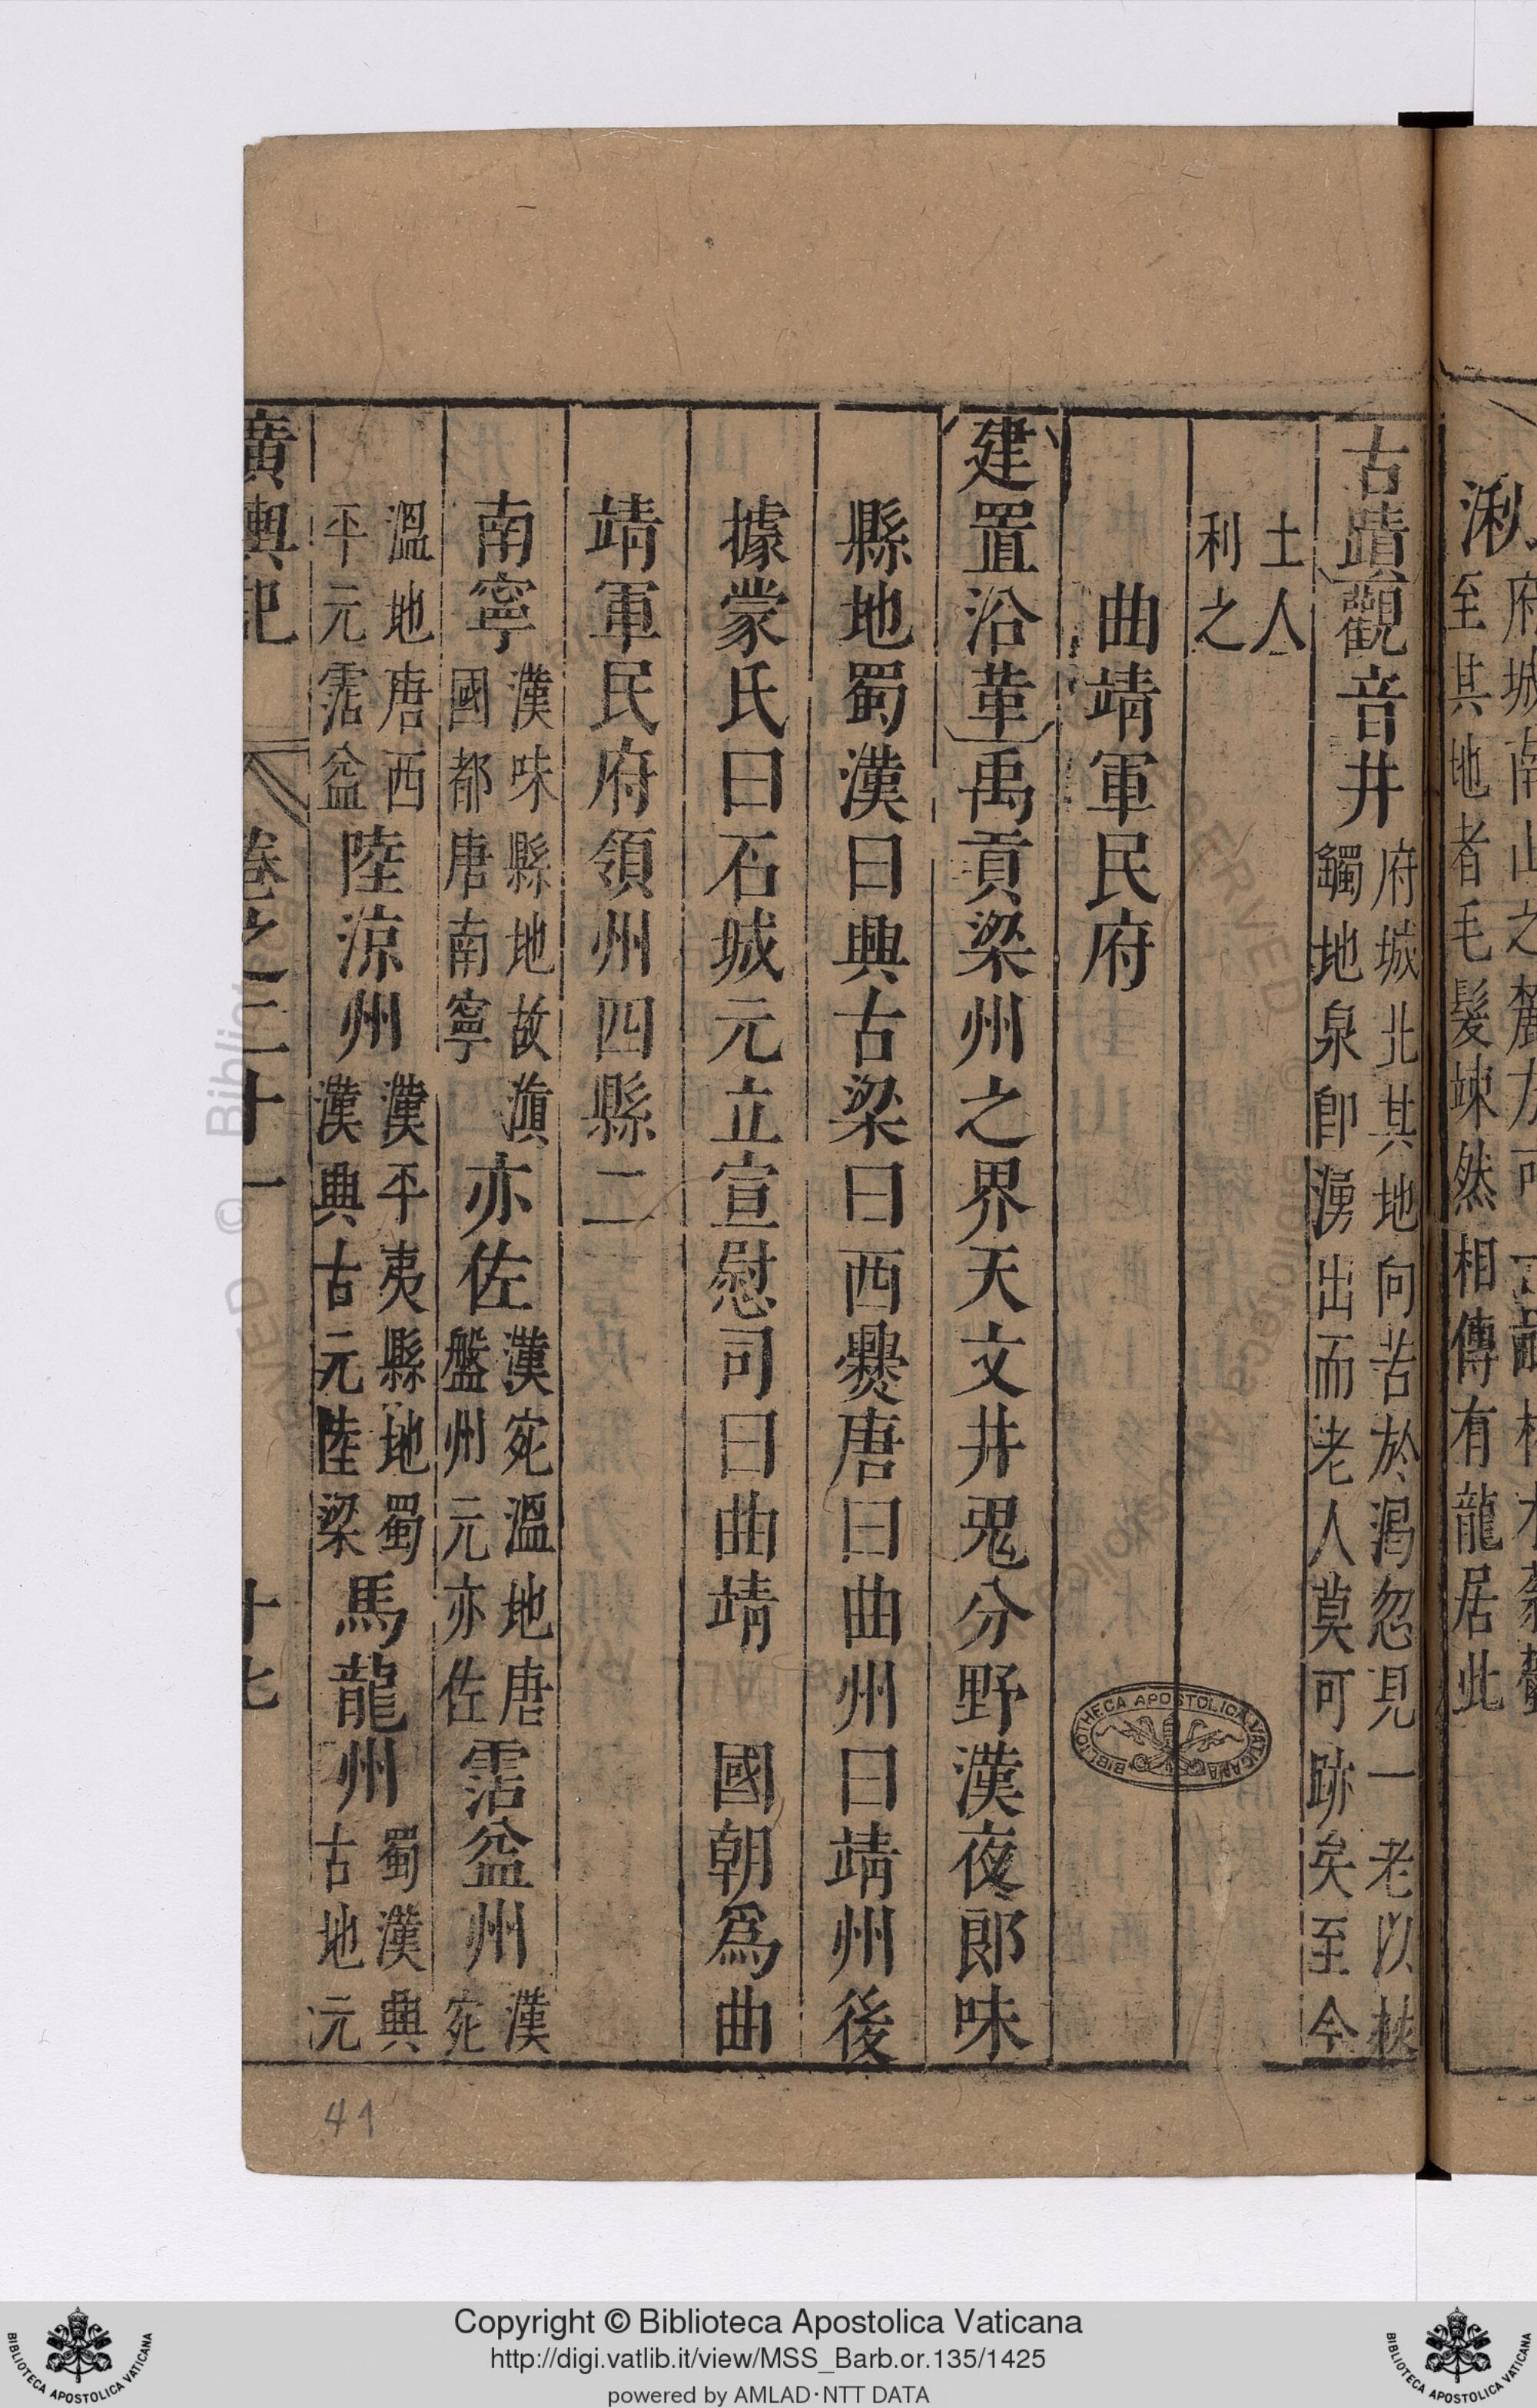 湫
至其地者毛髮竦然相傳有龍居此
古蹟觀音井
府城北其地向苦於渴忽見一老以杖
钃地泉卽湧出而老人莫可跡矣至今
土人
利之
曲靖軍民府
建置沿革禹貢梁州之界天文井鬼分野漢夜郎味
縣地蜀漢曰興古梁曰西爨唐曰曲州曰靖州後
據蒙氏曰石城元立宣慰司曰曲靖 國朝爲曲
靖軍民府領州四縣二
南寧 漢味縣地故滇
國都唐南寧 亦佐 漢宛溫地唐
盤州元亦佐 霑益州 漢
宛
溫地唐西
平元霑益 陸涼州 漢平夷縣地蜀
漢興古元陸梁 馬龍州 蜀漢興
古地元
廣輿記 卷之二十一 十七
41
BIBLIOTHECA APOSTOLICA VATICANA
Copyright © Biblioteca Apostolica Vaticana
http://digi.vatlib.it/view/MSS_Barb.or.135/1425
powered by AMLAD·NTT DATA
BIBLIOTECA APOSTOLICA VATICANA
BIBLIOTECA APOSTOLICA VATICANA